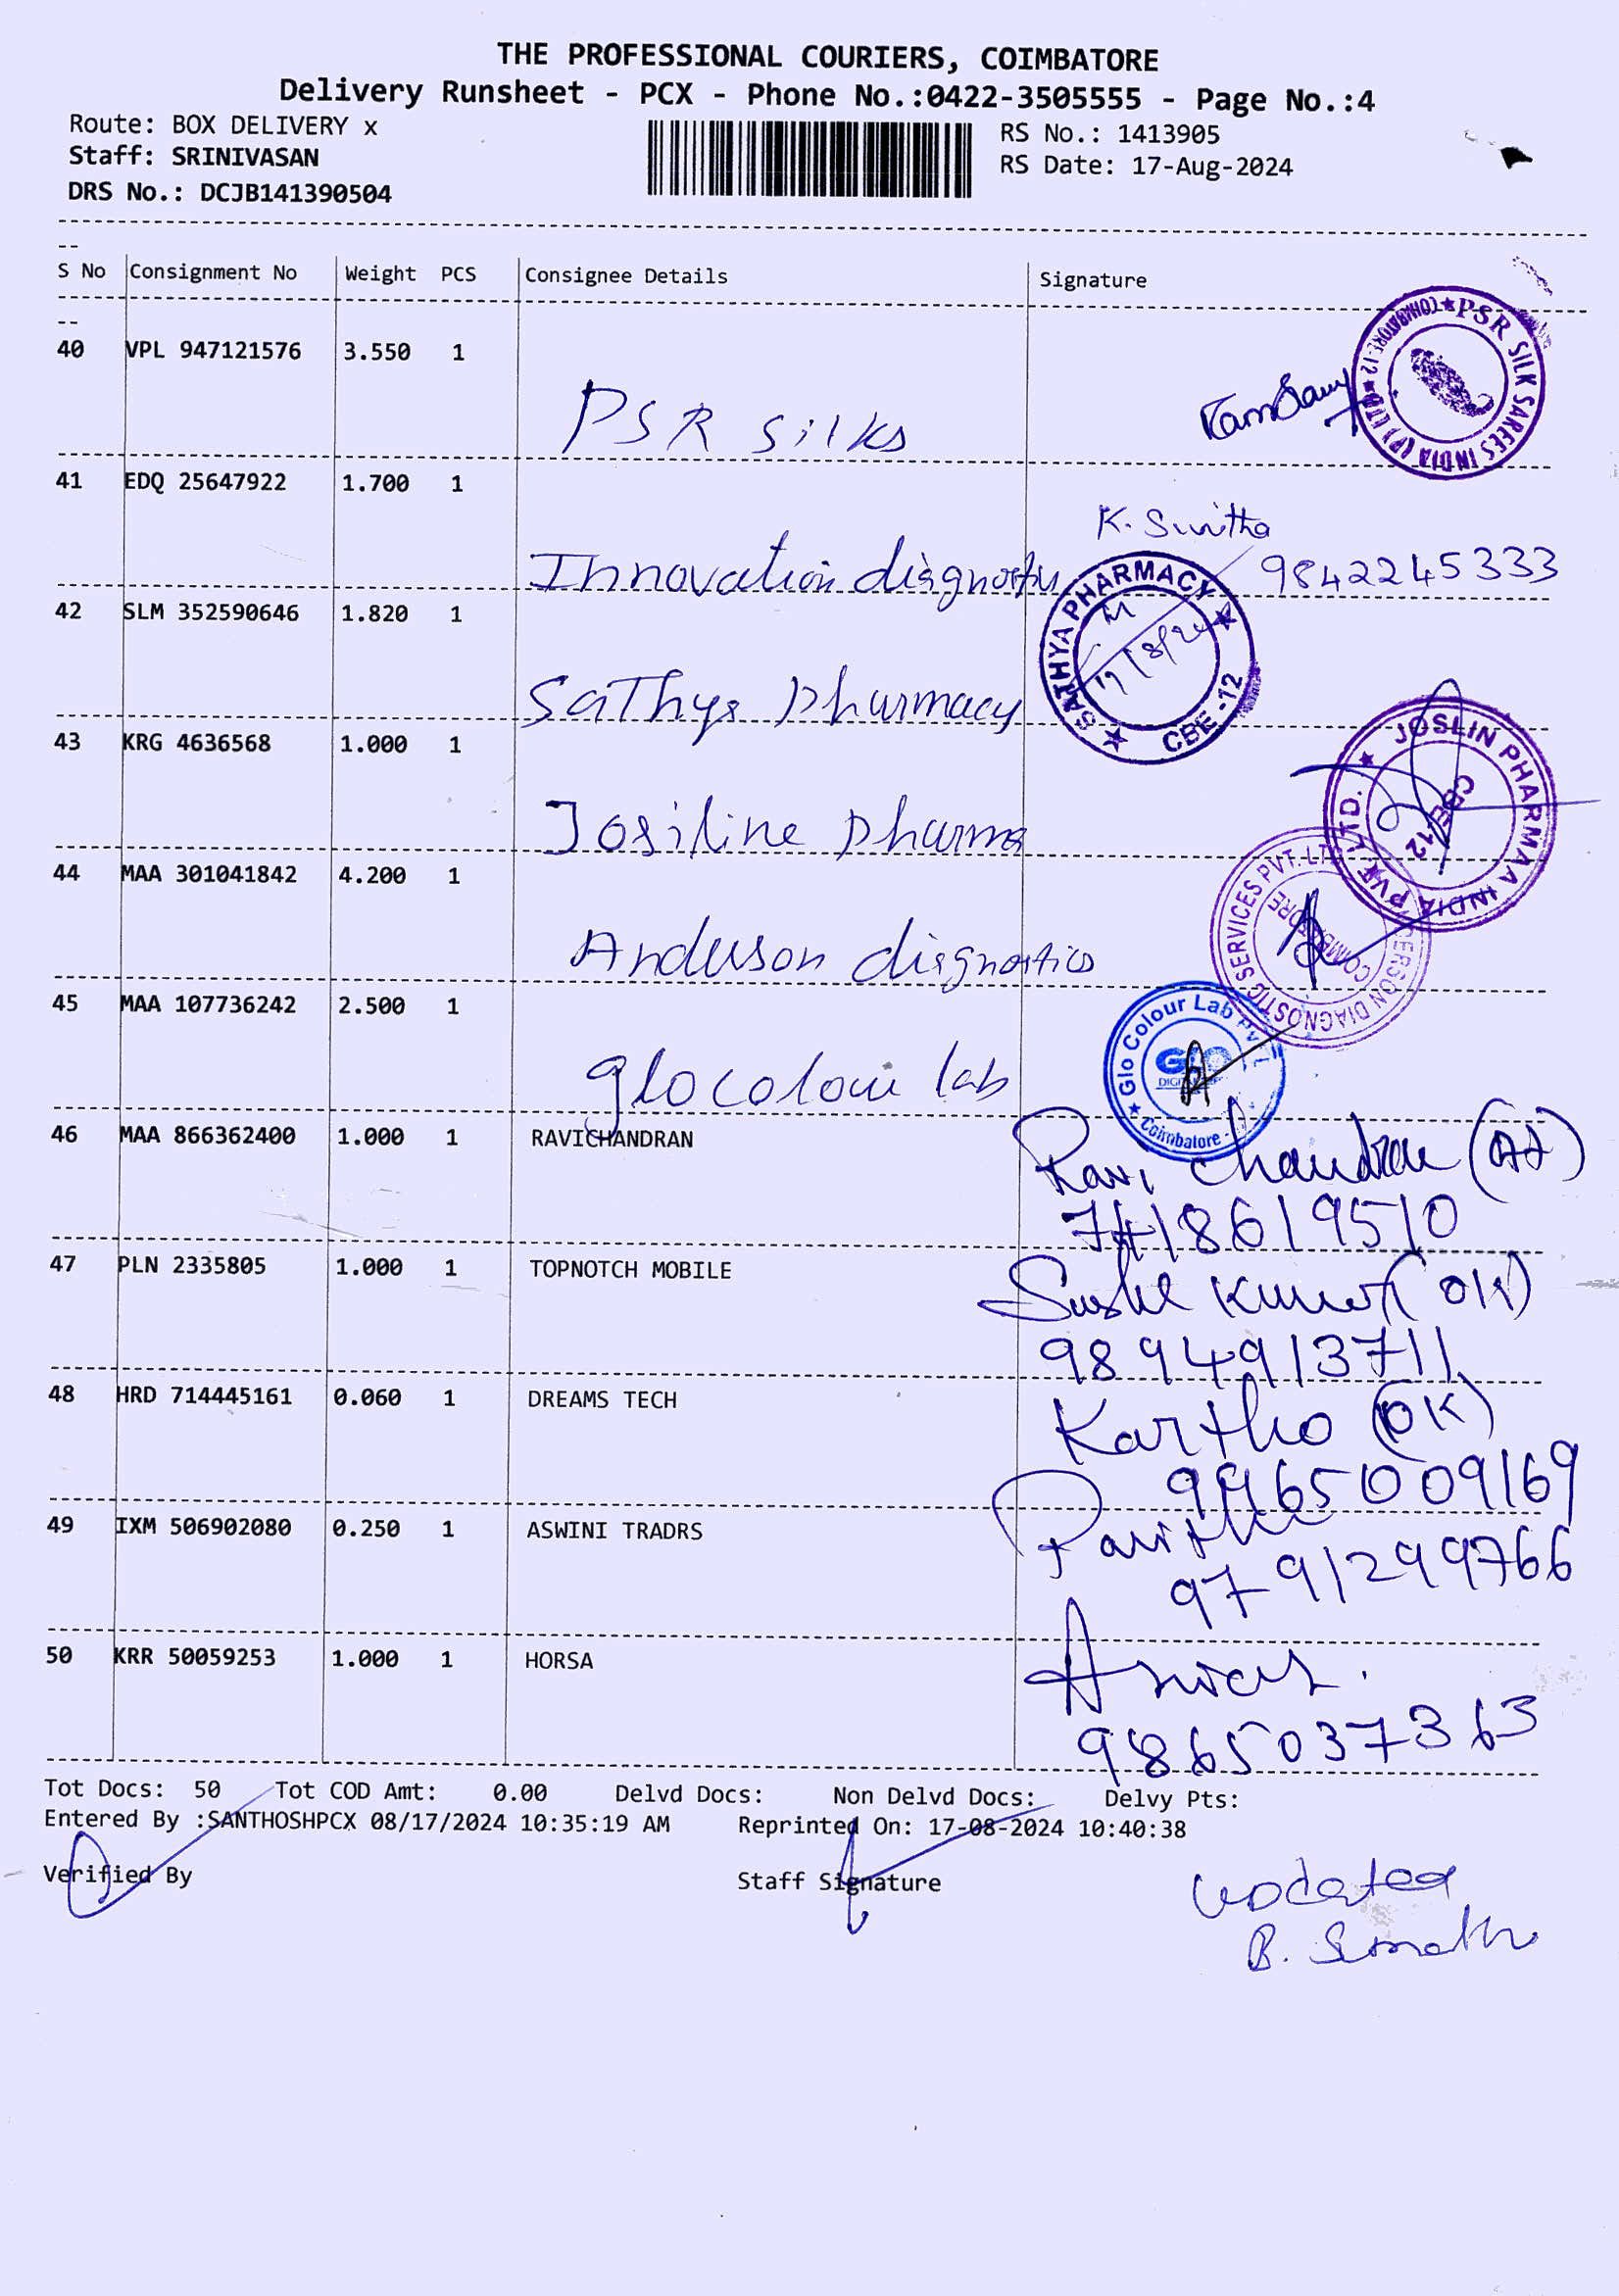 THE PROFESSIONAL COURIERS, COIMBATORE
Delivery Runsheet - PCX - Phone No.:0422-3505555 - Page No.:4
Route: BOX DELIVERY x
RS No.: 1413905
Staff: SRINIVASAN
RS Date: 17-Aug-2024
DRS No.: DCJB141390504
S No Consignment No Weight PCS Consignee Details Signature
40 VPL 947121576 3.550 1
PSR silks
PSR SILK SAREES INDIA (P) LTD COIMBATORE-12
41 EDQ 25647922 1.700 1
K. Sunitha
Innovation diagnostics 9842245333
42 SLM 352590646 1.820 1
SATHYA PHARMACY CBE -12
17/8/24
SaThya pharmacy
43 KRG 4636568 1.000 1
JOSLIN PHARMAA INDIA PVT LTD. CBE-12
Josiline pharma
44 MAA 301041842 4.200 1
ERSON DIAGNOSTIC SERVICES PVT. LTD COIMBATORE
Anderson diagnostics
45 MAA 107736242 2.500 1
Glo Colour Lab Pvt L Coimbatore -
glo colour lab
46 MAA 866362400 1.000 1 RAVICHANDRAN
Ravi Chandran
7418619510
47 PLN 2335805 1.000 1 TOPNOTCH MOBILE
Kumar (OK)
9894913711
48 HRD 714445161 0.060 1 DREAMS TECH
Kartho (OK)
9965009169
49 IXM 506902080 0.250 1 ASWINI TRADRS
9791299766
50 KRR 50059253 1.000 1 HORSA
9865037363
Tot Docs: 50 Tot COD Amt: 0.00 Delvd Docs: Non Delvd Docs: Delvy Pts:
Entered By :SANTHOSHPCX 08/17/2024 10:35:19 AM Reprinted On: 17-08-2024 10:40:38
Verified By Staff Signature
updated
B.